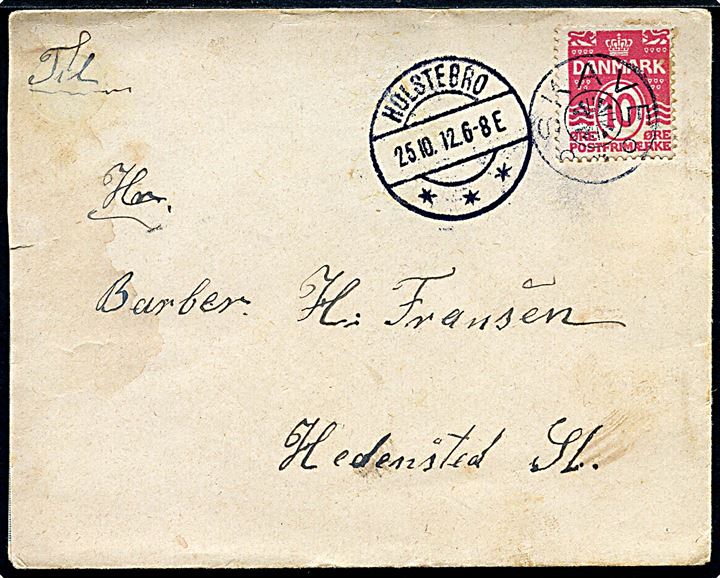 Til
HOLSTEBRO
25.10.12.6-8 E
DANMARK
10
ØRE ØRE
POSTFRIMÆRKE
SKAVE
Hr.
Barber. H: Fransen
Hedensted St.